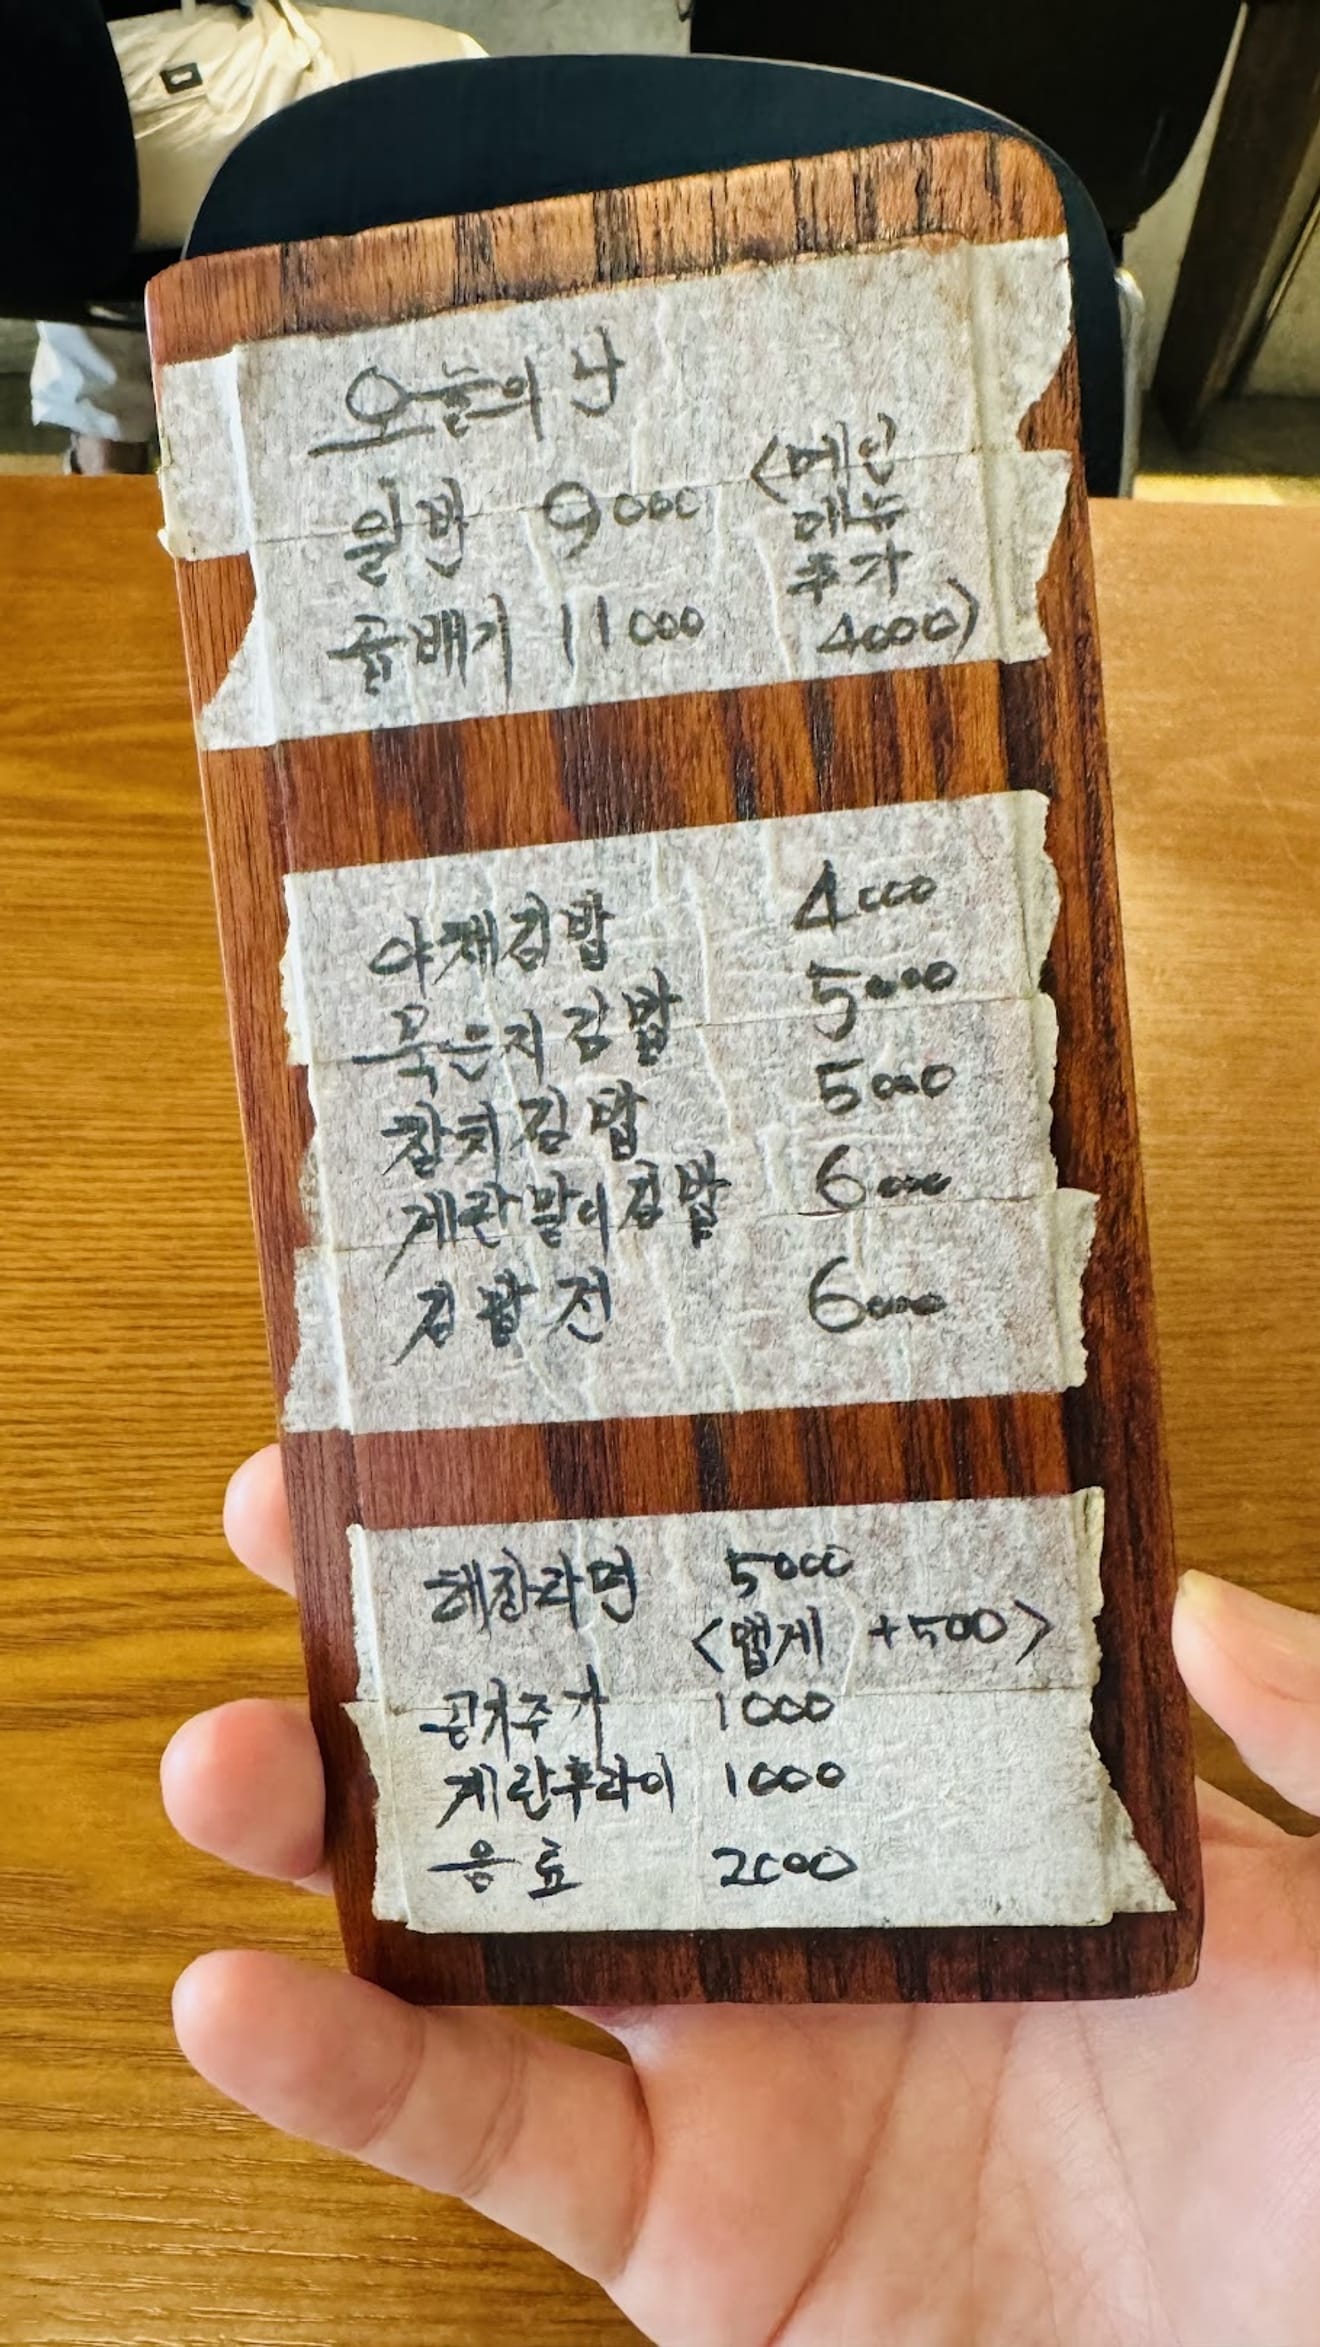 오늘의 난
일반 9000
곱배기 11000
<메인
메뉴
추가
4000>
야채김밥 4000
묵은지김밥 5000
참치김밥 5000
계란말이김밥 6000
김밥전 6000
해장라면 5000
<맵게 +500>
공기추가 1000
계란후라이 1000
음료 2000